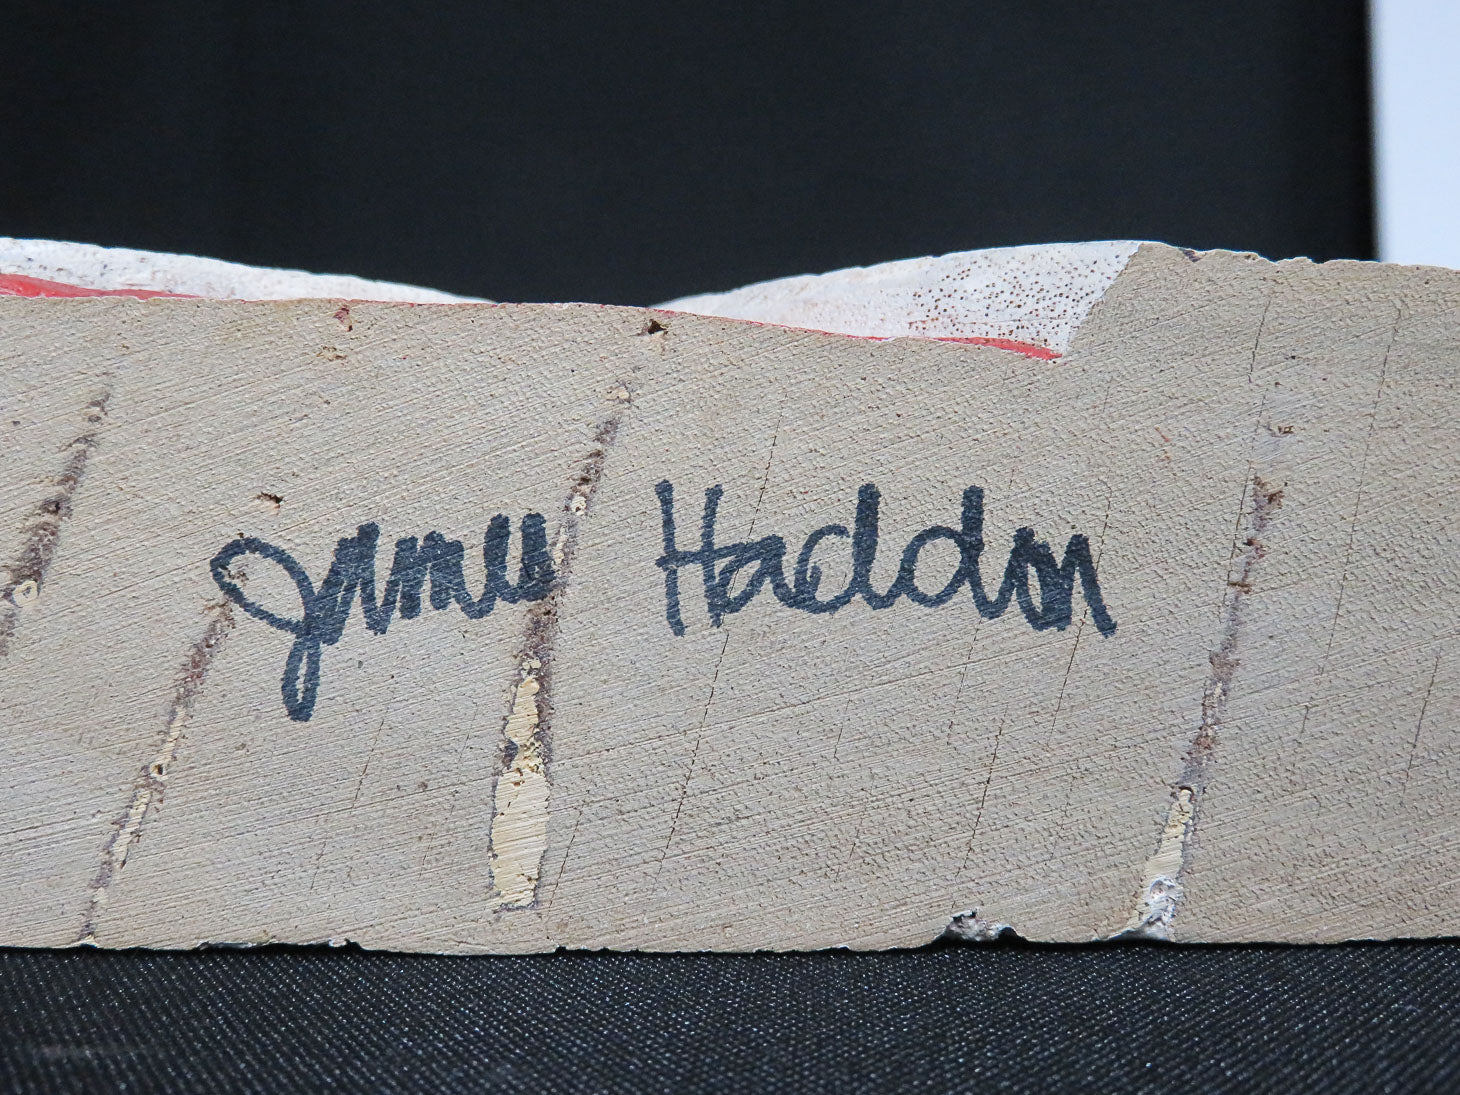 James Haddon